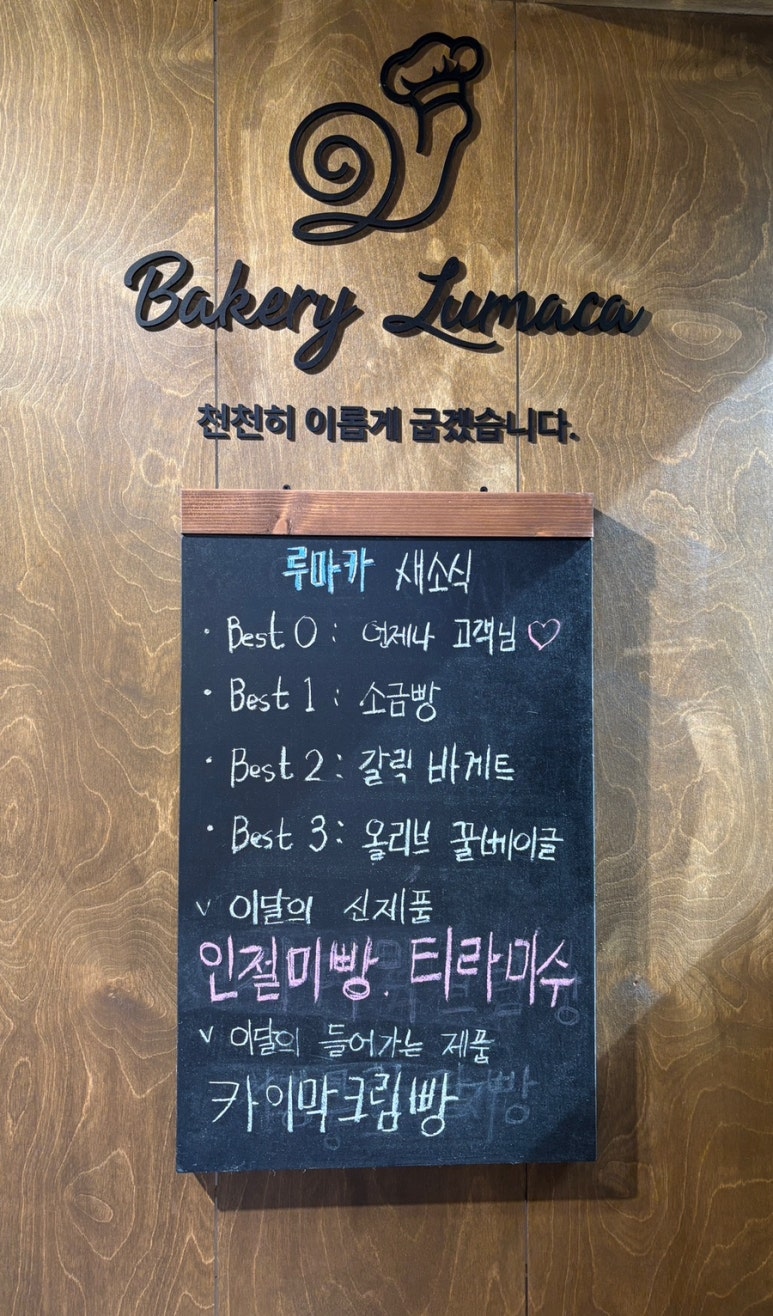 Bakery Lumaca
천천히 이롭게 굽겠습니다.
루마카 새소식
· Best 0 : 언제나 고객님 ♡
· Best 1 : 소금빵
· Best 2 : 갈릭 바게트
· Best 3 : 올리브 꿀베이글
v 이달의 신제품
인절미빵. 티라미수
v 이달의 들어가는 제품
카이막크림빵